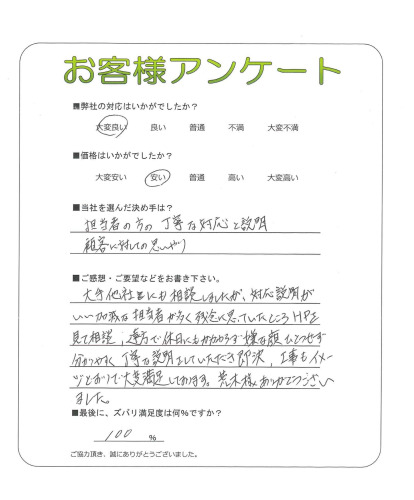 お客様アンケート
■弊社の対応はいかがでしたか？
大変良い 良い 普通 不満 大変不満
■価格はいかがでしたか？
大変安い 安い 普通 高い 大変高い
■当社を選んだ決め手は？
担当者の方の丁寧な対応と説明
顧客に対しての思いやり
■ご感想・ご要望などをお書き下さい。
大手他社にも相談しましたが、対応説明が
いい加減な担当者が多く残念に思っていたところHPを
見て相談、遠方で休日にもかかわらず嫌な顔ひとつせず
分かりやすく丁寧な説明をしていただき即決、工事もイメー
ジどおりで大変満足しております。荒木様ありがとうござい
ました。
■最後に、ズバリ満足度は何%ですか？
100 %
ご協力頂き、誠にありがとうございました。